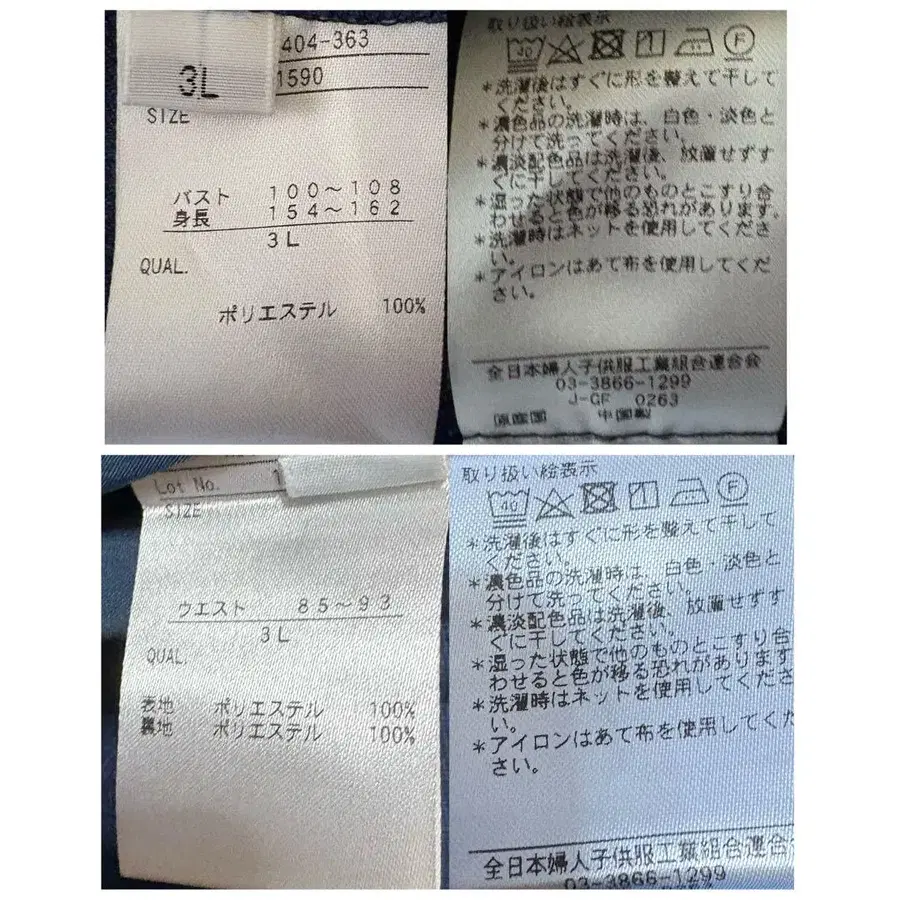 404-363
3L
1590
SIZE
バスト 100～108
身長 154～162
3L
QUAL.
ポリエステル 100%
取り扱い絵表示
40
F
*洗濯後はすぐに形を整えて干して
ください。
*濃色品の洗濯時は、白色・淡色と
分けて洗ってください。
*濃淡配色品は洗濯後、放置せずす
ぐに干してください。
*湿った状態で他のものとこすり合
わせると色が移る恐れがあります。
*洗濯時はネットを使用してくださ
い。
*アイロンはあて布を使用してくだ
さい。
全日本婦人子供服工業組合連合会
03-3866-1299
J-GF 0263
原産国 中国製
Lot No. 1
SIZE
ウエスト 85～93
3L
QUAL.
表地 ポリエステル 100%
裏地 ポリエステル 100%
取り扱い絵表示
40
F
*洗濯後はすぐに形を整えて干して
ください。
*濃色品の洗濯時は、白色・淡色と
分けて洗ってください。
*濃淡配色品は洗濯後、放置せずす
ぐに干してください。
*湿った状態で他のものとこすり合
わせると色が移る恐れがあります
*洗濯時はネットを使用してくださ
い。
*アイロンはあて布を使用してくだ
さい。
全日本婦人子供服工業組合連合会
03-3866-1299